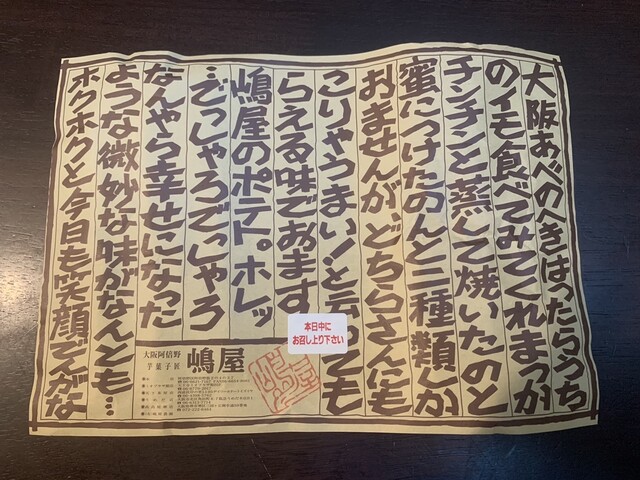 大阪あべのへきはったらうち
のイモ食べてみてくれまっか
チンチンと蒸して焼いたのと
蜜につけたのんと二種類しか
おませんが、どちらさんにも
こりゃうまい!と云っても
らえる味でおます
嶋屋のポテト。ホレッ
…でっしゃろでっしゃろ
なんやら幸せになった
ような微妙な味がなんとも…
ホクホクと今日も笑顔でえがな
本日中に
お召し上り下さい
大阪阿倍野
芋菓子匠
嶋屋